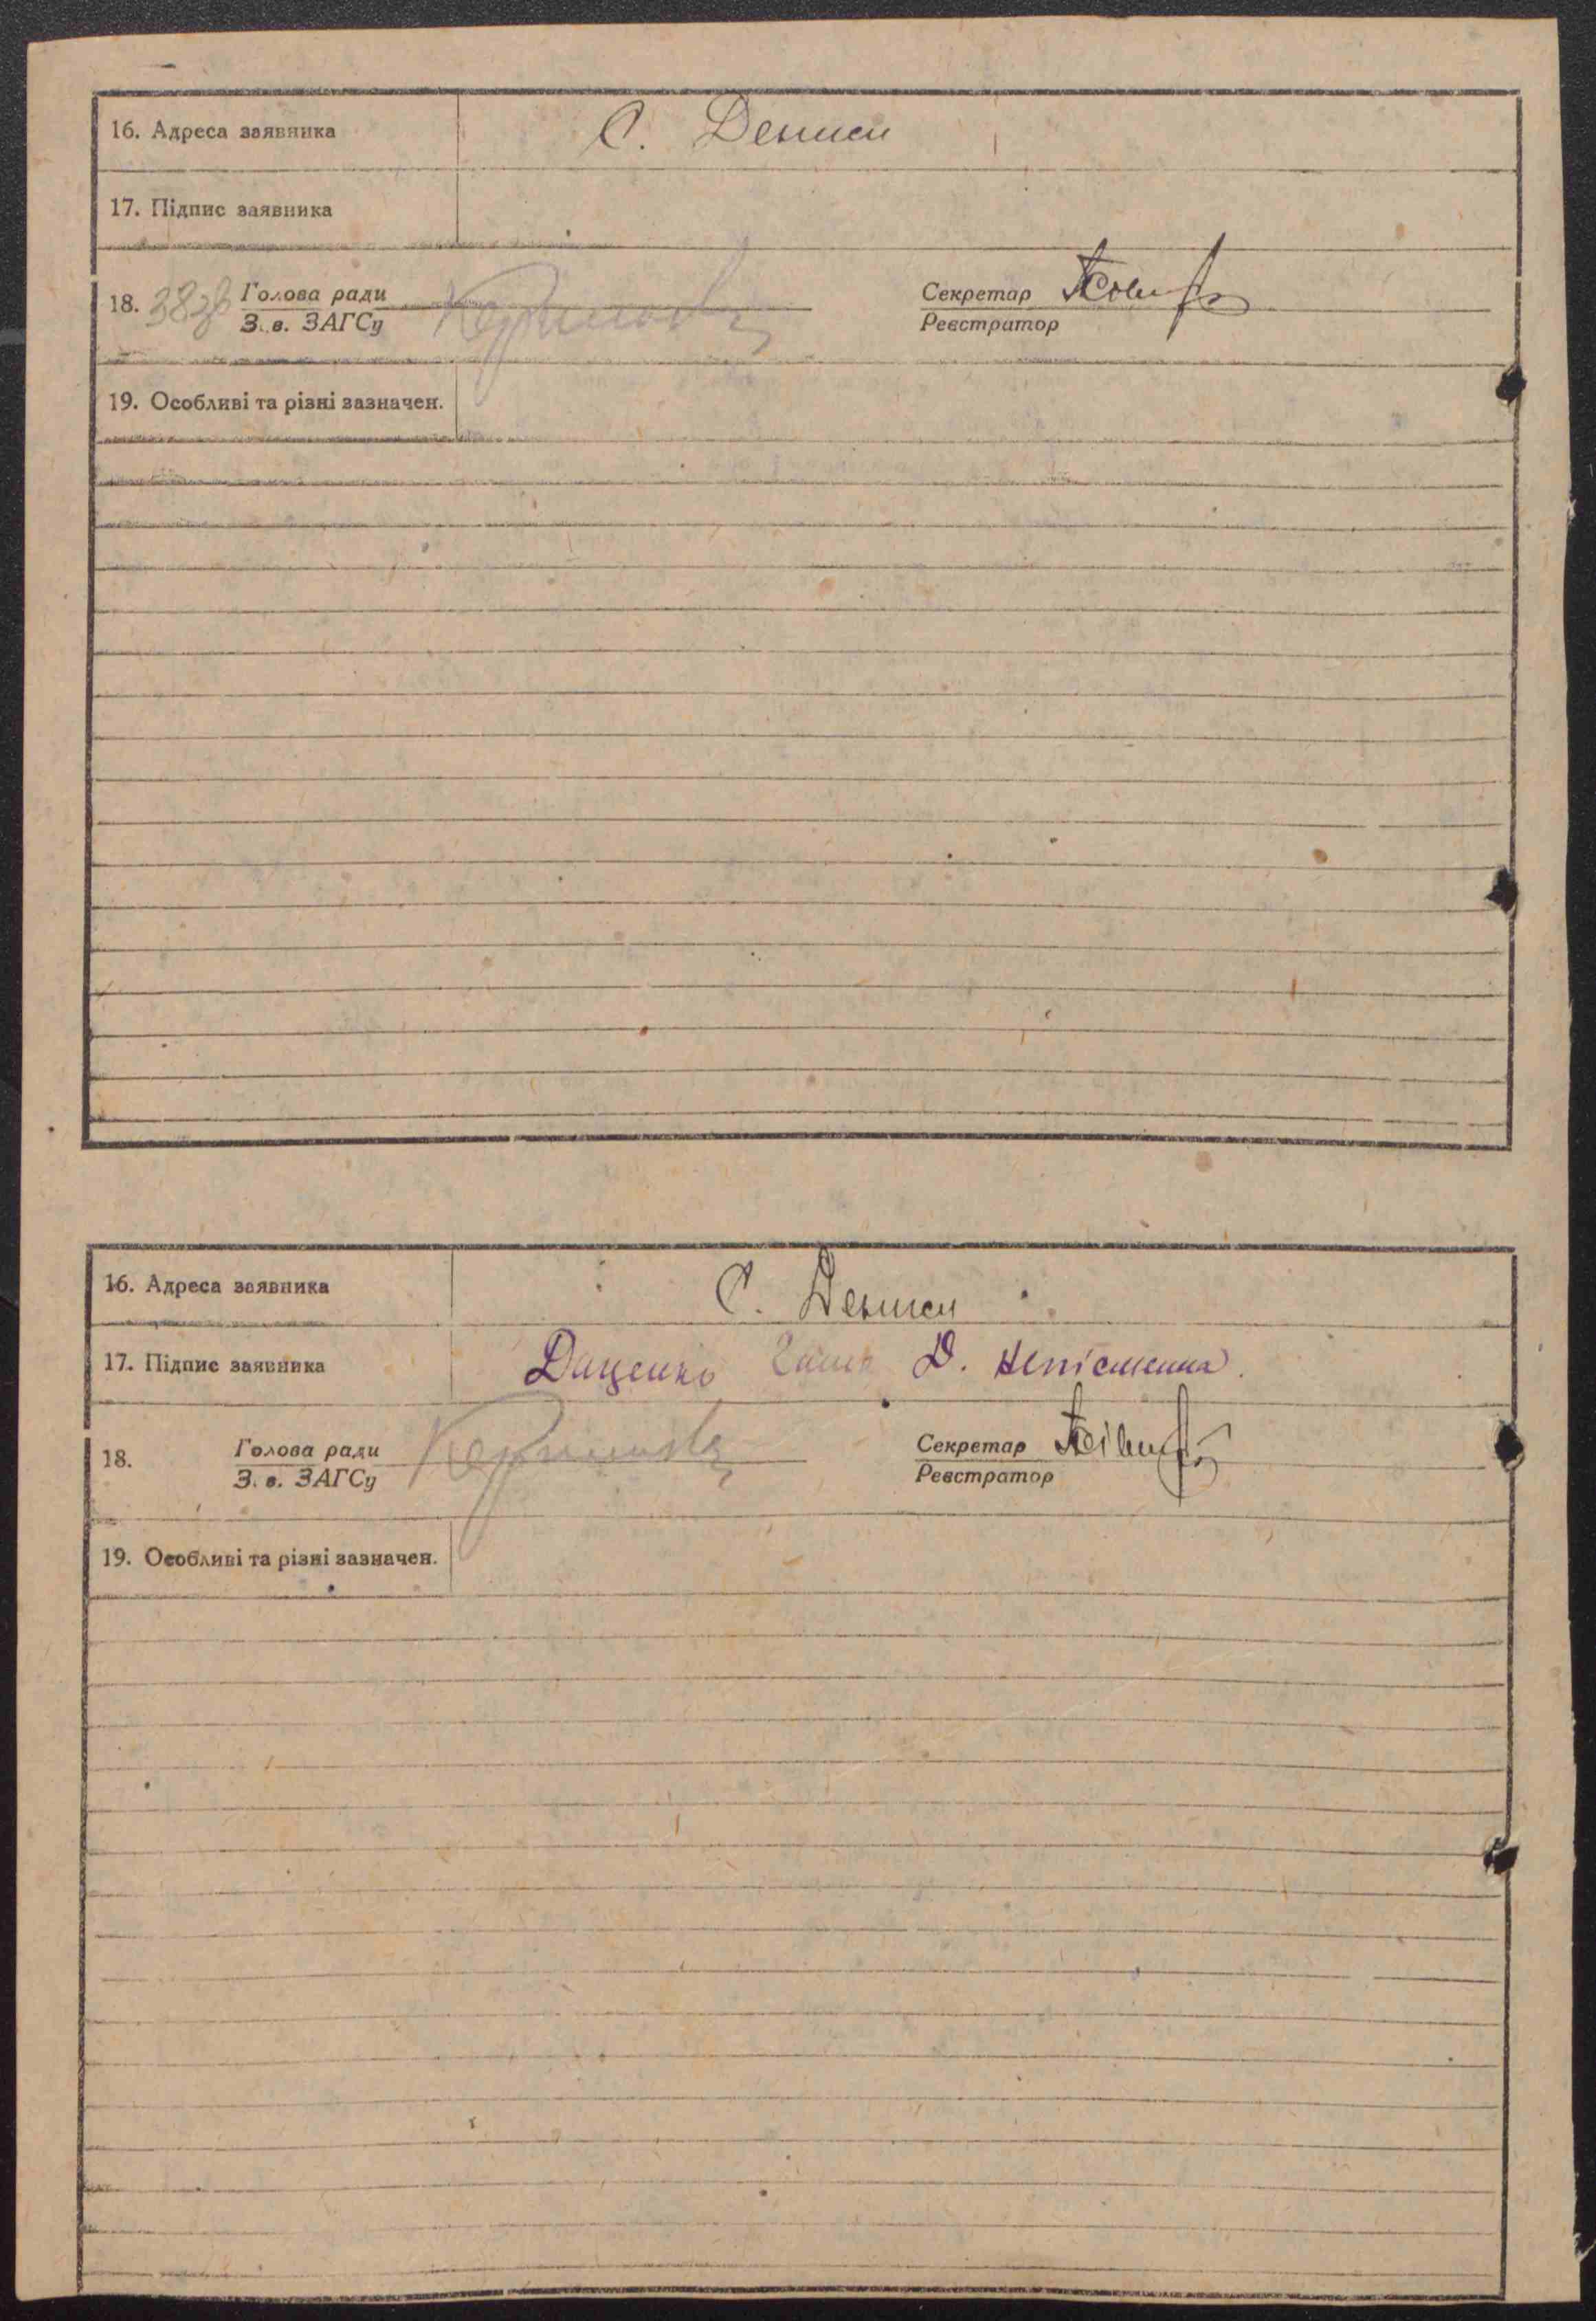 16. Адреса заявника С. Дениси
17. Підпис заявника
18. 38зв Голова ради Секретар
З. в. ЗАГСу Реєстратор
19. Особливі та різні зазначен.
16. Адреса заявника С. Дениси
17. Підпис заявника Даценко Д. неписьменна
18. Голова ради Секретар
З. в. ЗАГСу Реєстратор
19. Особливі та різні зазначен.